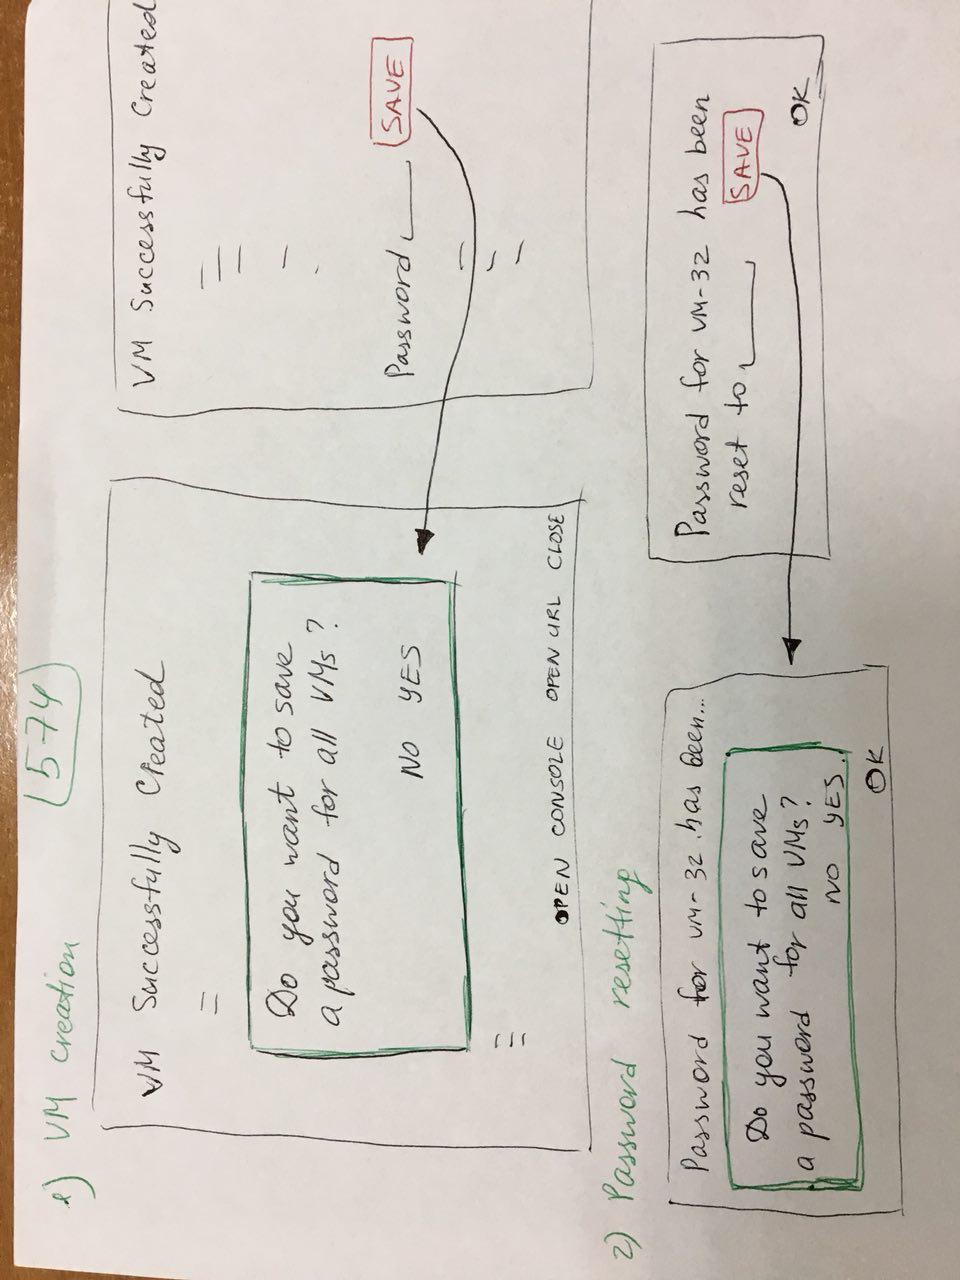 574
1) VM creation
VM Successfully Created
Do you want to save
a password for all VMs?
NO YES
OPEN CONSOLE OPEN URL CLOSE
VM Successfully Created
Password SAVE
2) Password resetting
Password for VM-32 has been...
Do you want to save
a password for all VMs?
NO YES
OK
Password for VM-32 has been
reset to SAVE
OK